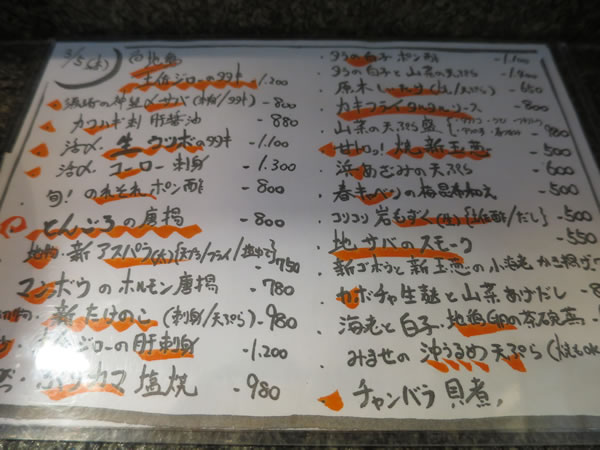 3/5(水)
土佐ジローのタタキ -1.200
須崎の神経〆サバ(刺/タタキ) -800
カワハギ刺 肝醤油 880
活〆 生ウツボのタタキ -1.100
活〆 コーロー刺身 -1.300
旬! のれそれポン酢 -800
どんころの唐揚 -800
新アスパラ -750
マンボウのホルモン唐揚 -780
新たけのこ (刺身/天ぷら) -980
ジローの肝刺身 -1.200
カマ 塩焼 -980
タラの白子ポン酢 -1.100
タラの白子と山菜の天ぷら
原木しいたけ /天ぷら) -650
カキフライタルタルソース -800
山菜の天ぷら盛 -980
甘トロ! 焼新玉葱 -500
浜あざみの天ぷら -600
春キャベツの梅昆布和え -500
コリコリ岩もずく /だし) -500
地サバのスモーク -550
新ゴボウと新玉葱の小海老かき揚げ
カボチャ生麩と山菜あげだし
海老と白子・地鶏卵の茶碗蒸
みませの沖うるめ天ぷら
チャンバラ貝煮